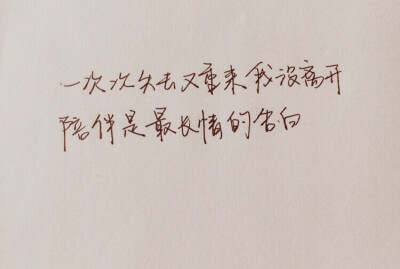 一次次失去又重来我没离开
陪伴是最长情的告白